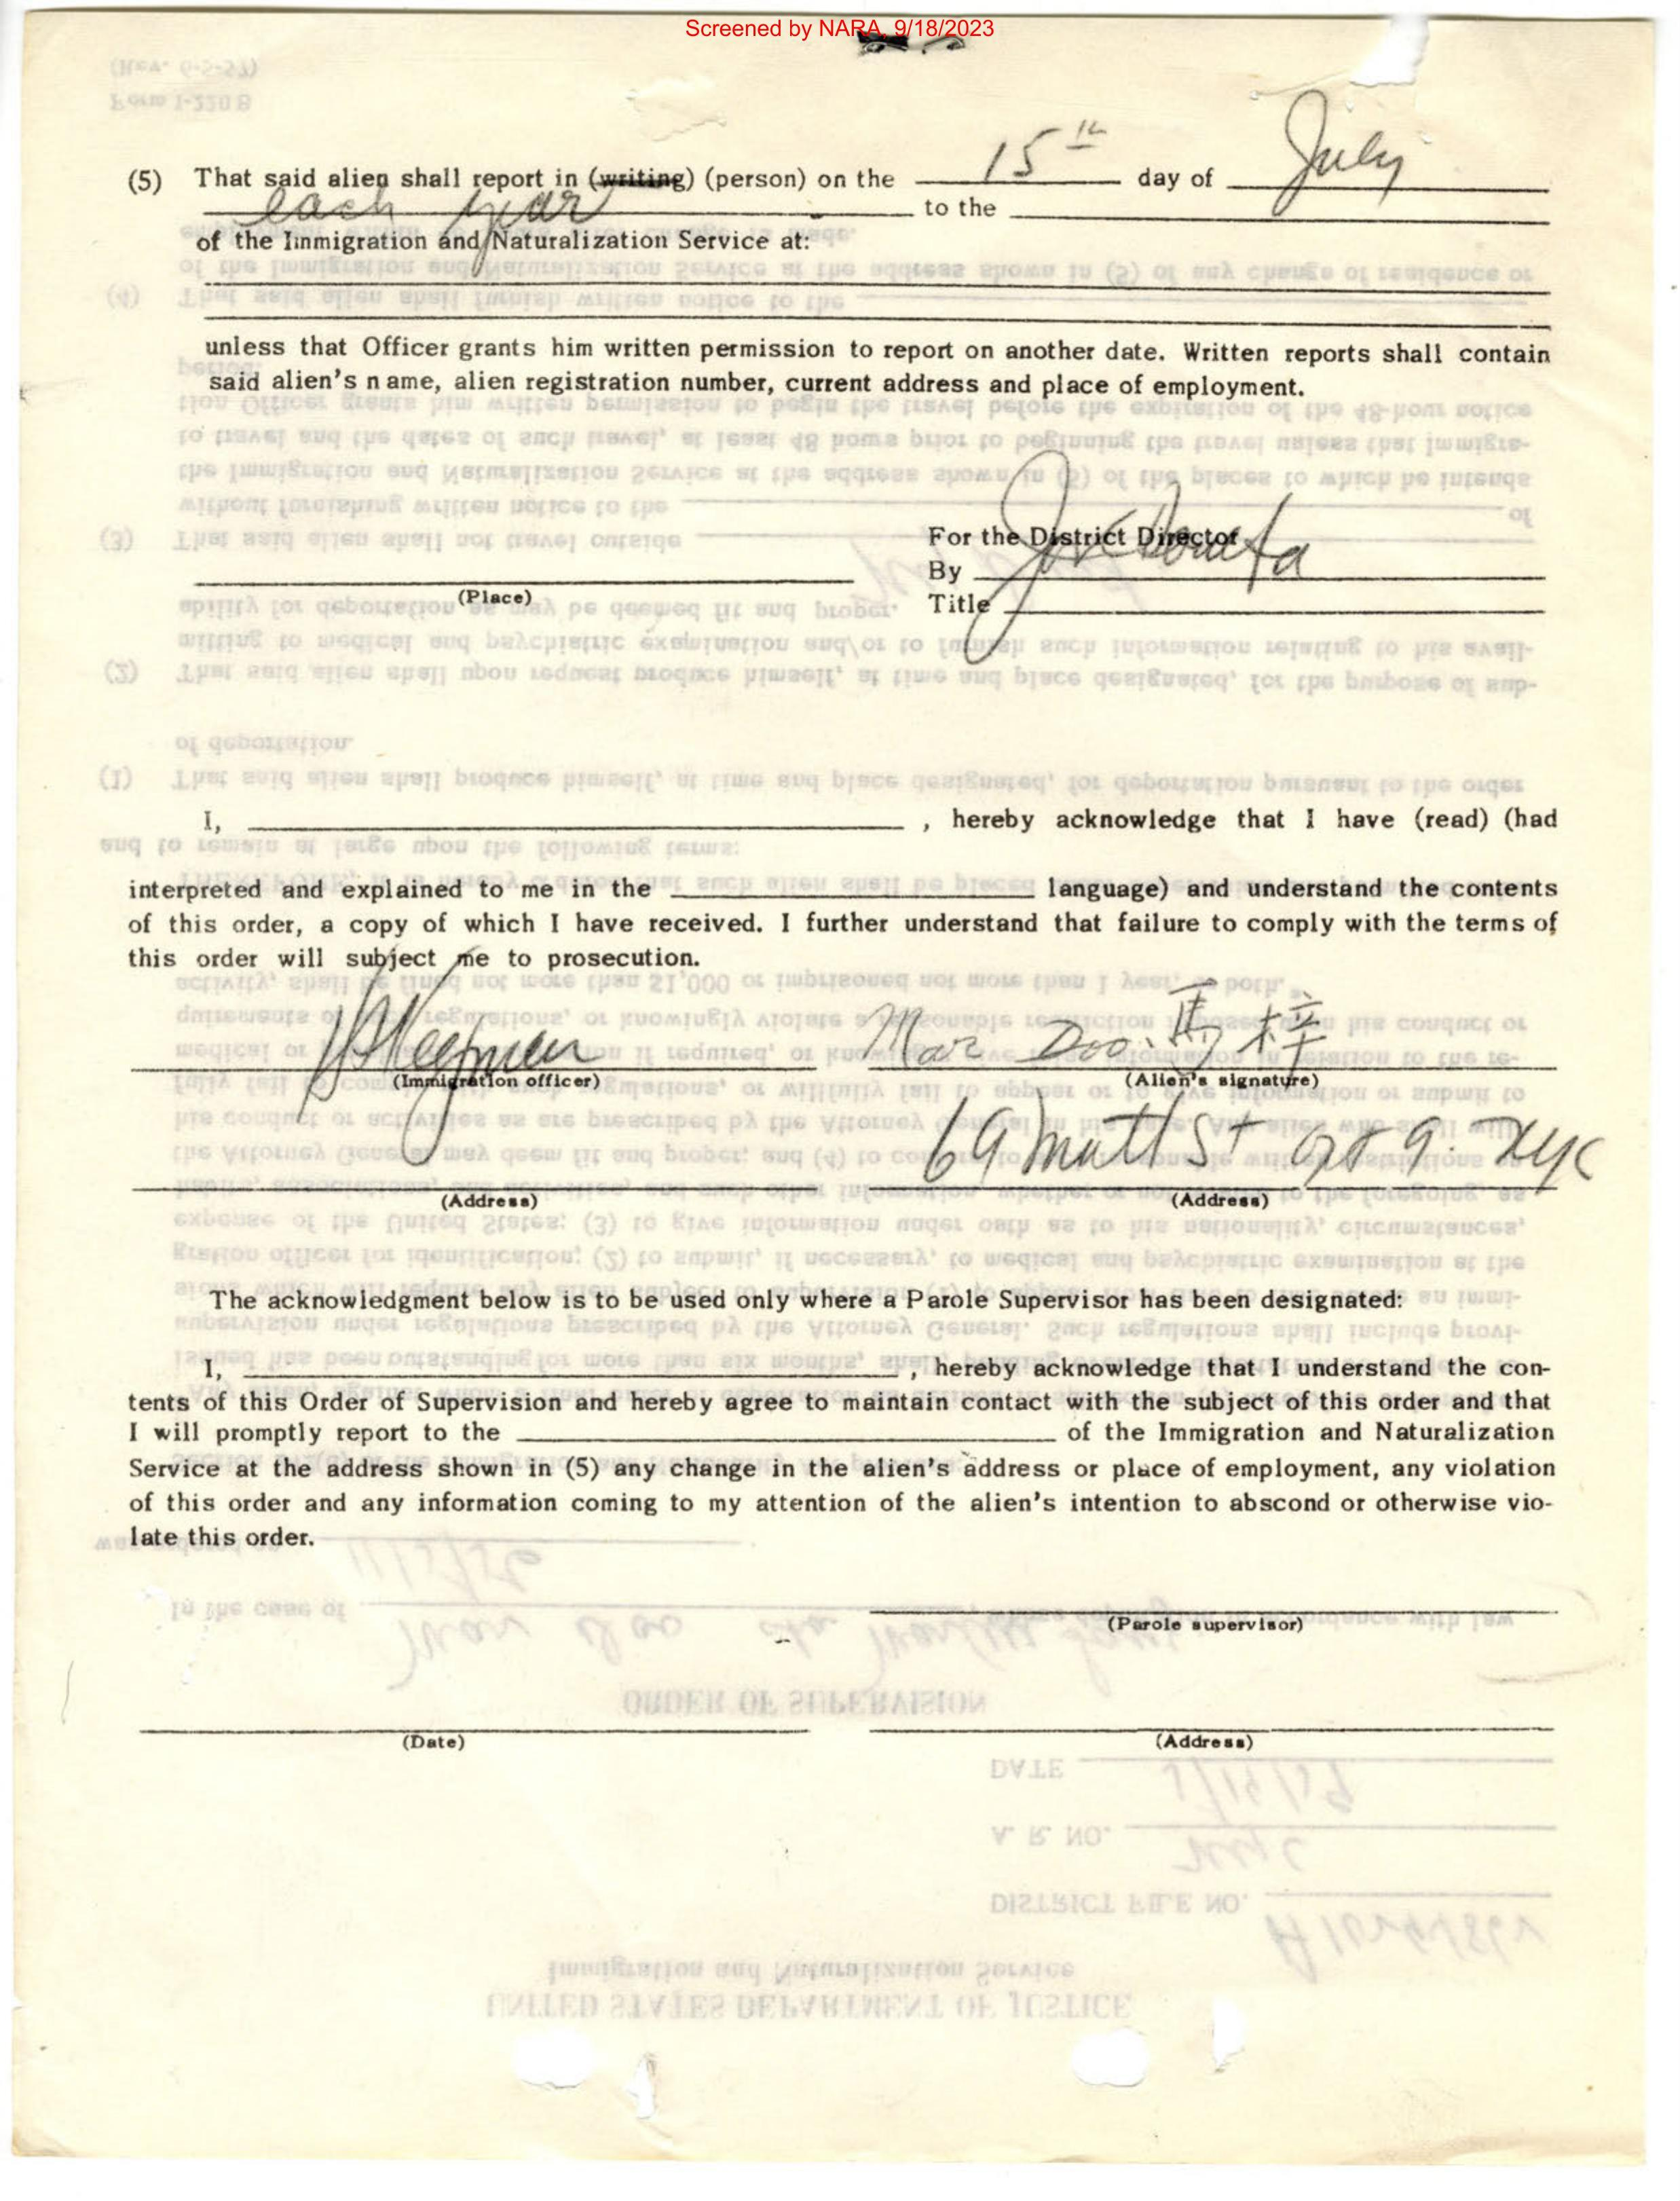 Screened by NARA, 9/18/2023
(5) That said alien shall report in (writing) (person) on the 15th day of July
each year to the
of the Immigration and Naturalization Service at:
unless that Officer grants him written permission to report on another date. Written reports shall contain
said alien's name, alien registration number, current address and place of employment.
For the District Director
By
(Place)
Title
I, , hereby acknowledge that I have (read) (had
interpreted and explained to me in the language) and understand the contents
of this order, a copy of which I have received. I further understand that failure to comply with the terms of
this order will subject me to prosecution.
Mar Doo. 馬梓
(Immigration officer) (Alien's signature)
69 Mott St apt 9. NYC
(Address) (Address)
The acknowledgment below is to be used only where a Parole Supervisor has been designated:
I, , hereby acknowledge that I understand the con-
tents of this Order of Supervision and hereby agree to maintain contact with the subject of this order and that
I will promptly report to the of the Immigration and Naturalization
Service at the address shown in (5) any change in the alien's address or place of employment, any violation
of this order and any information coming to my attention of the alien's intention to abscond or otherwise vio-
late this order.
(Parole supervisor)
(Date) (Address)